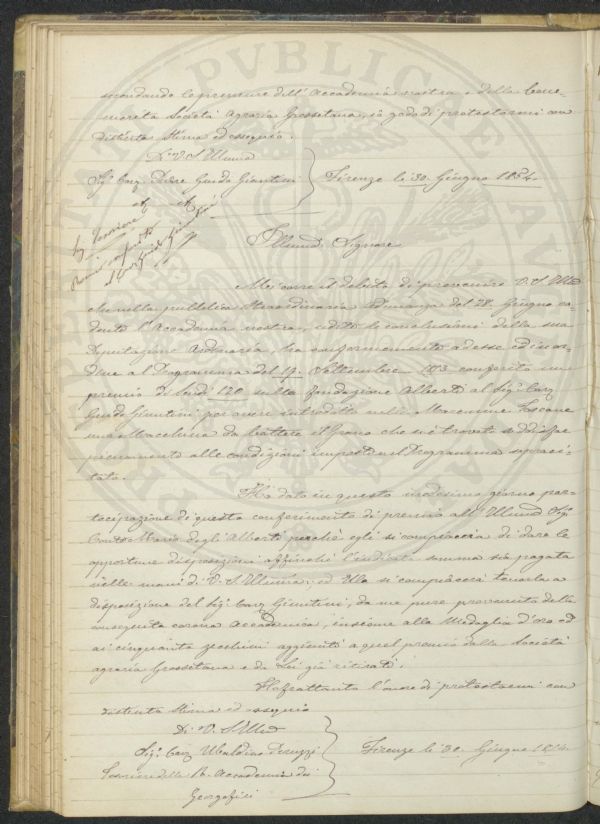 secondando le premure dell'Accademia nostra e della bene-
merita Società Agraria Grossetana, io godo di protestarmi con
distinta stima ed ossequio.
Di V. S. Illma
Sig. Cav. Guido Giuntini
Firenze li 30. Giugno 1854
Illmo. Signore
Mi corre il debito di prevenire V. S. Illma
che nella pubblica straordinaria Adunanza del 28. Giugno ca-
dente l'Accademia nostra, udite le conclusioni della sua
Deputazione Ordinaria, ha conformemente ad esse ed in or-
dine al Programma del 19. Settembre 1853 conferito un
premio di Scudi 120 sulla fondazione Alberti al Sig. Cav.
Guido Giuntini per avere introdotto nelle Maremme Toscane
una Macchina da battere il Grano che si è trovata soddisfare
pienamente alle condizioni imposte nel Programma soprac-
tato.
Ho dato in questo medesimo giorno par-
tecipazione di questo conferimento di premio all'Illmo Sig.
Conte Mario degli Alberti perchè egli si compiaccia di dare le
opportune disposizioni affinchè l'indicata somma sia pagata
nelle mani di V. S. Illma; ed Ella si compiacerà tenerla a
disposizione del Sig. Cav. Giuntini, da me pure prevenuto della
conseguita corona Accademica, insieme alla Medaglia d'oro ed
ai cinquanta zecchini aggiunti a quel premio dalla Società
agraria Grossetana e da Lei già ritirati.
Ho frattanto l'onore di protestarmi con
distinta stima ed ossequio
Di V. S. Illma
Sig. Cav. Ubaldino Peruzzi
Firenze li 30. Giugno 1854
Tesoriere della R. Accademia dei
Georgofili